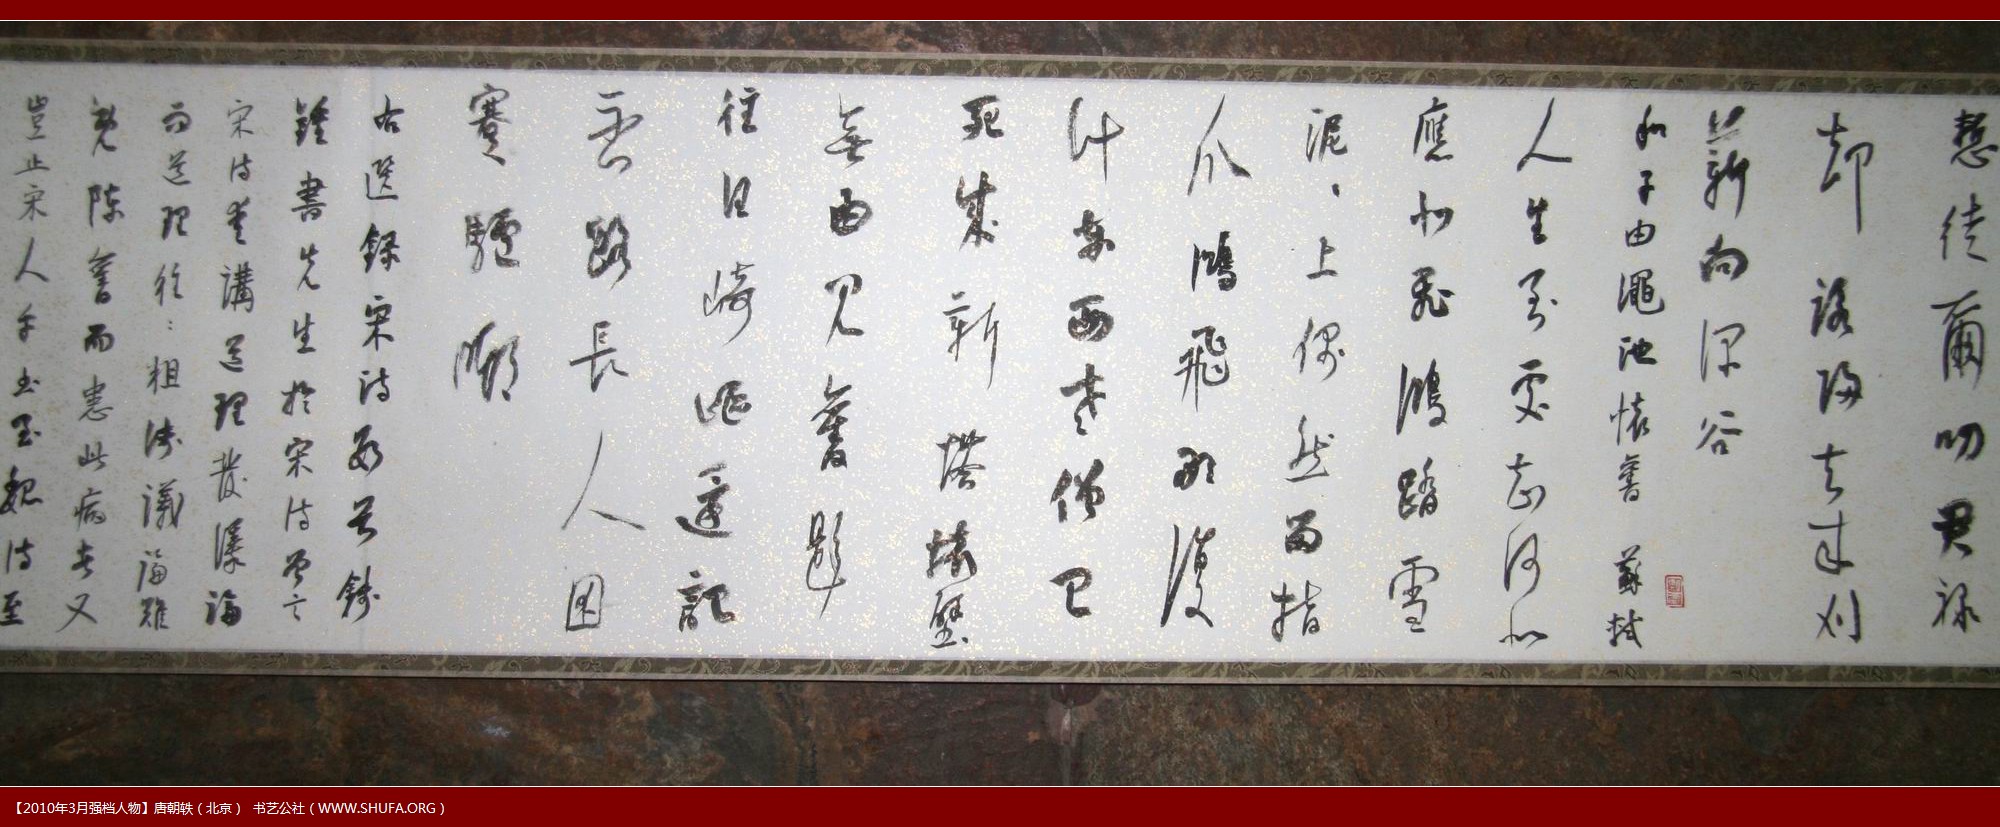 慙徒爾叨君祿
却歸去來刈
薪向深谷
和子由澠池懷舊 蘇軾
人生到處知何似
應似飛鴻踏雪
泥泥上偶然留指
爪鴻飛那復
計東西老僧已
死成新塔壞壁
無由見舊題
往日崎嶇還記
否路長人困
蹇驢嘶
右選錄宋詩數首錢
鍾書先生於宋詩曾言
宋詩愛講道理發議論
而道理往往粗淺議論雖
舊而患此病者又
豈止宋人乎
【2010年3月强档人物】唐朝轶（北京） 书艺公社（WWW.SHUFA.ORG）